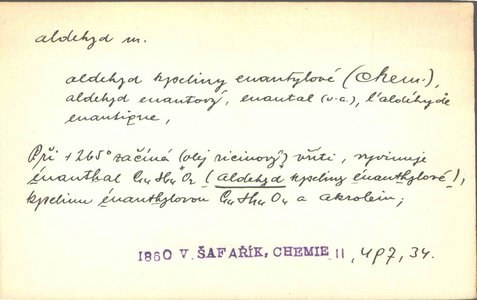 aldehyd m.
aldehyd kyseliny enantylové (chem.),
aldehyd enantový, enantal (v.c.), l'aldéhyde
enantique,
Při +265° začíná (olej ricinový) vříti, vyvinuje
énanthal C₁₄H₁₄O₂ (aldehyd kyseliny énanthylové),
kyselinu énanthylovou C₁₄H₁₄O₄ a akrolein;
1860 V. ŠAFAŘÍK, CHEMIE II, 497, 34.